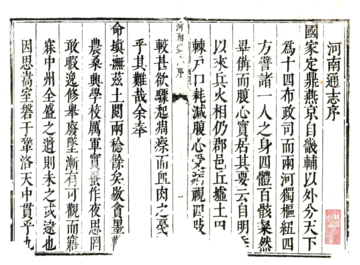 河南通志序
國家定鼎燕京自畿輔以外分天下
為十四布政司而兩河獨樞紐四
方譬諸一人之身四體百骸粲然
畢備而腹心實居其要云自明季
以來兵火相仍郡邑丘墟土田
棘戶口耗減腹心受視四肢
較甚欲驟起凋瘵而肉之戞
乎其難哉余奉
河南通志序
命填撫茲土閱兩稔餘矣貪墨
農桑興學校厲軍實蚤作夜思罔
敢暇逸修舉廢墜漸有可觀而
寐中州全盛之遺則未之或逮也
因思嵩室于鞏洛天中貫乎九